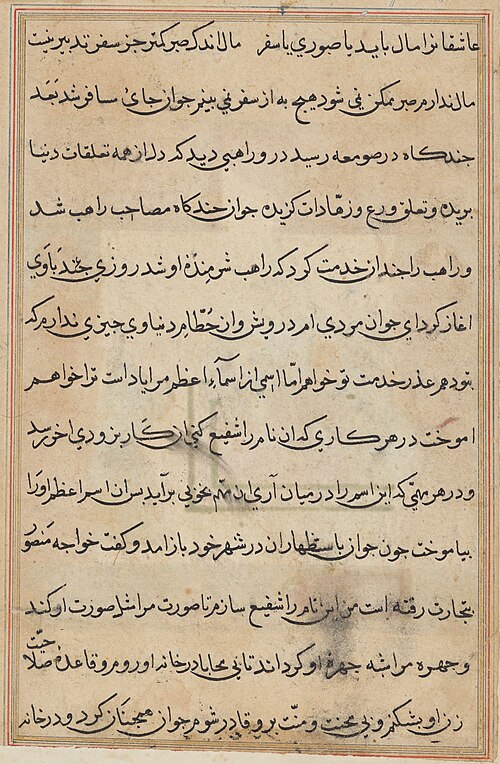 عاشقانرا مال بايد يا صبوري يا سفر مال اندك صبر كمتر جز سفر تدبير نيست
مال ندارم صبر ممكن نمي شود هيچ به از سفر نمي بينم جوان جاي مسافر شد بعد
چندكاه در صومعه رسيد درو راهبي ديد كه دل از همه تعلقات دنيا
بريده و تعلق ورع و زهادات كزيده جوان چندكاه مصاحب راهب شد
و راهب را چندان خدمت كرد كه راهب شرمندۀ او شد روزي چند باوي
اغاز كرد اي جوان مردي ام درويش و از حطام دنياوي چيزي ندارم كه
بتو دهم عذر خدمت تو خواهم اما اسمي از اسمآء اعظم مرا ياد است ترا خواهم
اموخت در هر كاري كه ان نام را شفيع كني ان كار بزودي اخر رسد
و در هر مهمي كه اين اسم را در ميان آري ان مهم بخوبي برآيد پس ان اسم اعظم اورا
بياموخت چون جوان باستظهار ان در شهر خود باز امد و كفت خواجه منصور
بتجارت رفته است من اين نام را شفيع سازم تا صورت مرا مثل صورت او كند
و چهره مرا شبه چهرۀ او كرداند تا بي محابا در خانه او روم و قاعدۀ صلاحيت
زن او بشكنم و بي محنت و منت برو قادر شوم جوان همچنان كرد و در خانه